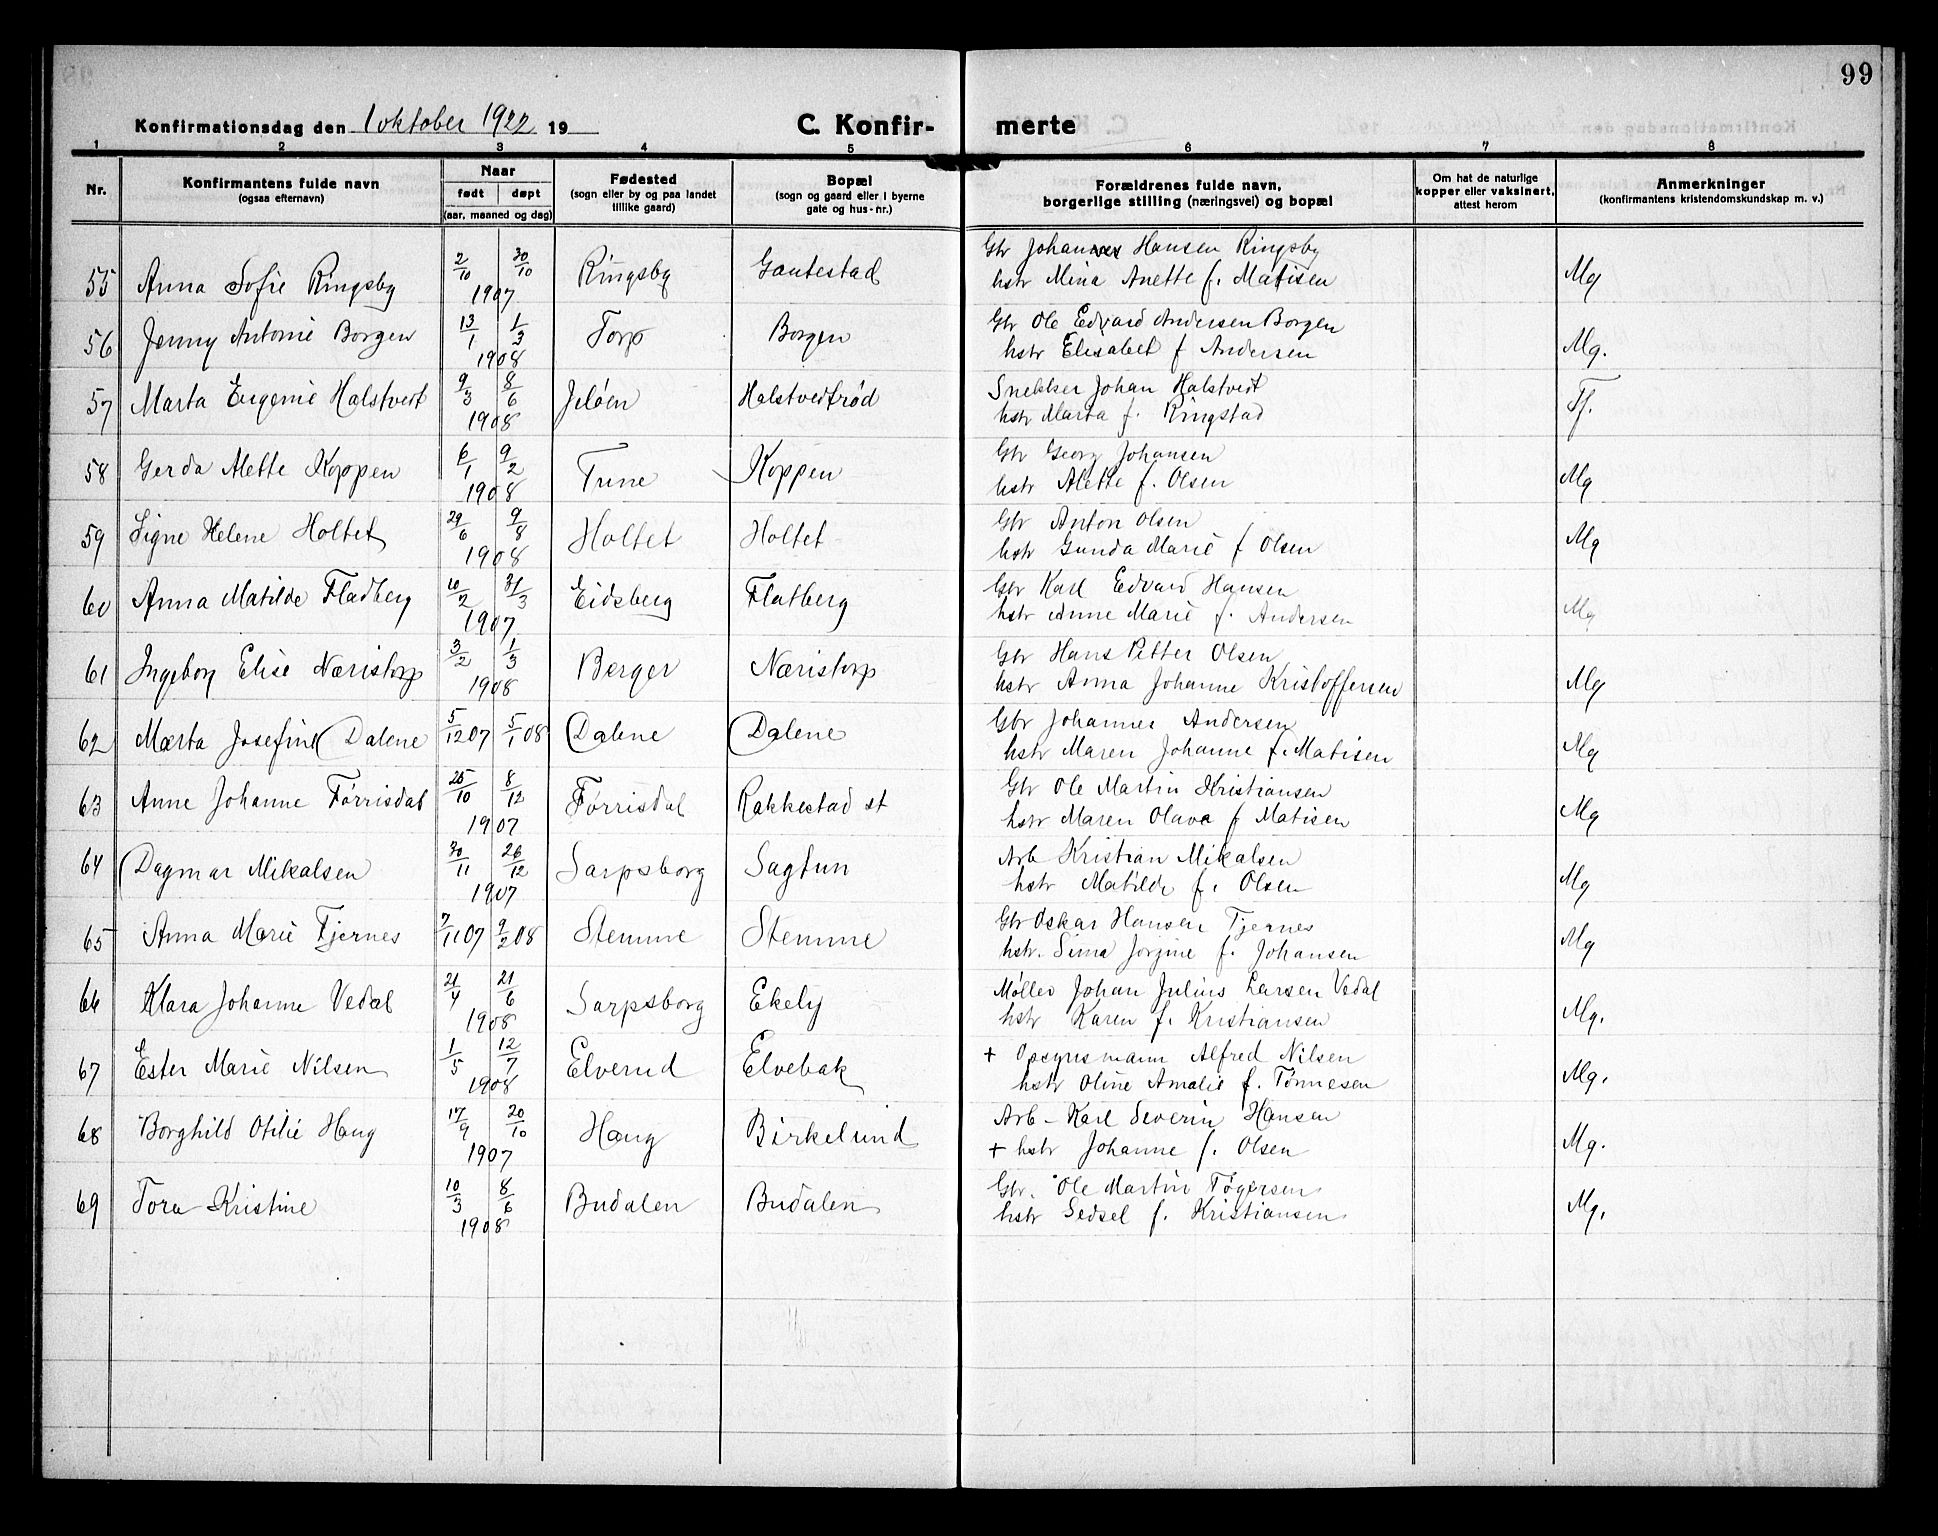 99
Konfirmationsdag den 1 oktober 1922 19
C. Konfir- merte
1 2 3 4 5 6 7 8
Nr.
Konfirmantens fulde navn
(ogsaa efternavn)
Naar
født døpt
(aar, maaned og dag)
Fødested
(sogn eller by og paa landet
tillike gaard)
Bopæl
(sogn og gaard eller i byerne
gate og hus-nr.)
Forældrenes fulde navn,
borgerlige stilling (næringsvei) og bopæl
Om hat de naturlige
kopper eller vaksinert,
attest herom
Anmerkninger
(konfirmantens kristendomskundskap m. v.)
55 Anna Sofie Ringsby 2/10 30/10 1907 Ringsby Gautestad Gbr Johannes Hansen Ringsby
hstr Mina Anette f. Matisen Mg
56 Jenny Antonie Borgen 13/1 1/3 1908 Torp Borgen Gbr Ole Edvard Andersen Borgen
hstr Elisabet f Andersen Mg.
57 Marta Eugenie Halstvedt 9/3 8/6 1908 Jeløen Halstvedtrød Snekker Johan Halstvedt
hstr Marta f. Ringstad Tf.
58 Gerda Alette Koppen 6/1 9/2 1908 Tune Koppen Gbr Georg Johansen
hstr Alette f. Olsen Mg
59 Signe Helene Holtet 29/6 9/8 1908 Holtet Holtet Gbr Anton Olsen
hstr Gunda Marie f Olsen Mg
60 Anna Matilde Fladberg 10/2 31/3 1907 Eidsberg Flatberg Gbr Karl Edvard Hansen
hstr Anne Marie f. Andersen Mg
61 Ingeborg Elise Næristorp 3/2 1/3 1908 Berger Næristorp Gbr Hans Petter Olsen
hstr Anna Johanne Kristoffersen Mg
62 Marta Josefine Dalene 5/12 07 5/1 08 Dalene Dalene Gbr Johannes Andersen
hstr Maren Johanne f. Matisen Mg
63 Anne Johanne Tørrisdal 25/10 8/12 1907 Tørrisdal Rakkestad st Gbr Ole Martin Kristiansen
hstr Maren Olava f Matisen Mg
64 Dagmar Mikalsen 30/11 26/12 1907 Sarpsborg Sagtun Arb Kristian Mikalsen
hstr Matilde f. Olsen Mg
65 Anna Marie Tjernes 7/11 07 9/2 08 Stemme Stemme Gbr Oskar Hansen Tjernes
hstr. Sina Jorgine f. Johansen Mg
66 Klara Johanne Vedal 21/4 21/6 1908 Sarpsborg Ekely Møller Johan Julius Larsen Vedal
hstr Karen f. Kristiansen Mg.
67 Ester Marie Nilsen 1/5 12/7 1908 Elverud Elvebak + Opsynsmann Alfred Nilsen
hstr Oline Amalie f. Tønnesen Mg.
68 Borghild Otilie Haug 17/9 20/10 1907 Haug Birkelund Arb - Karl Severin Hansen
+ hstr Johanne f. Olsen Mg.
69 Tora Kristine 10/3 8/6 1908 Budalen Budalen Gbr. Ole Martin Tøgersen
hstr Sedsel f. Kristiansen Mg.